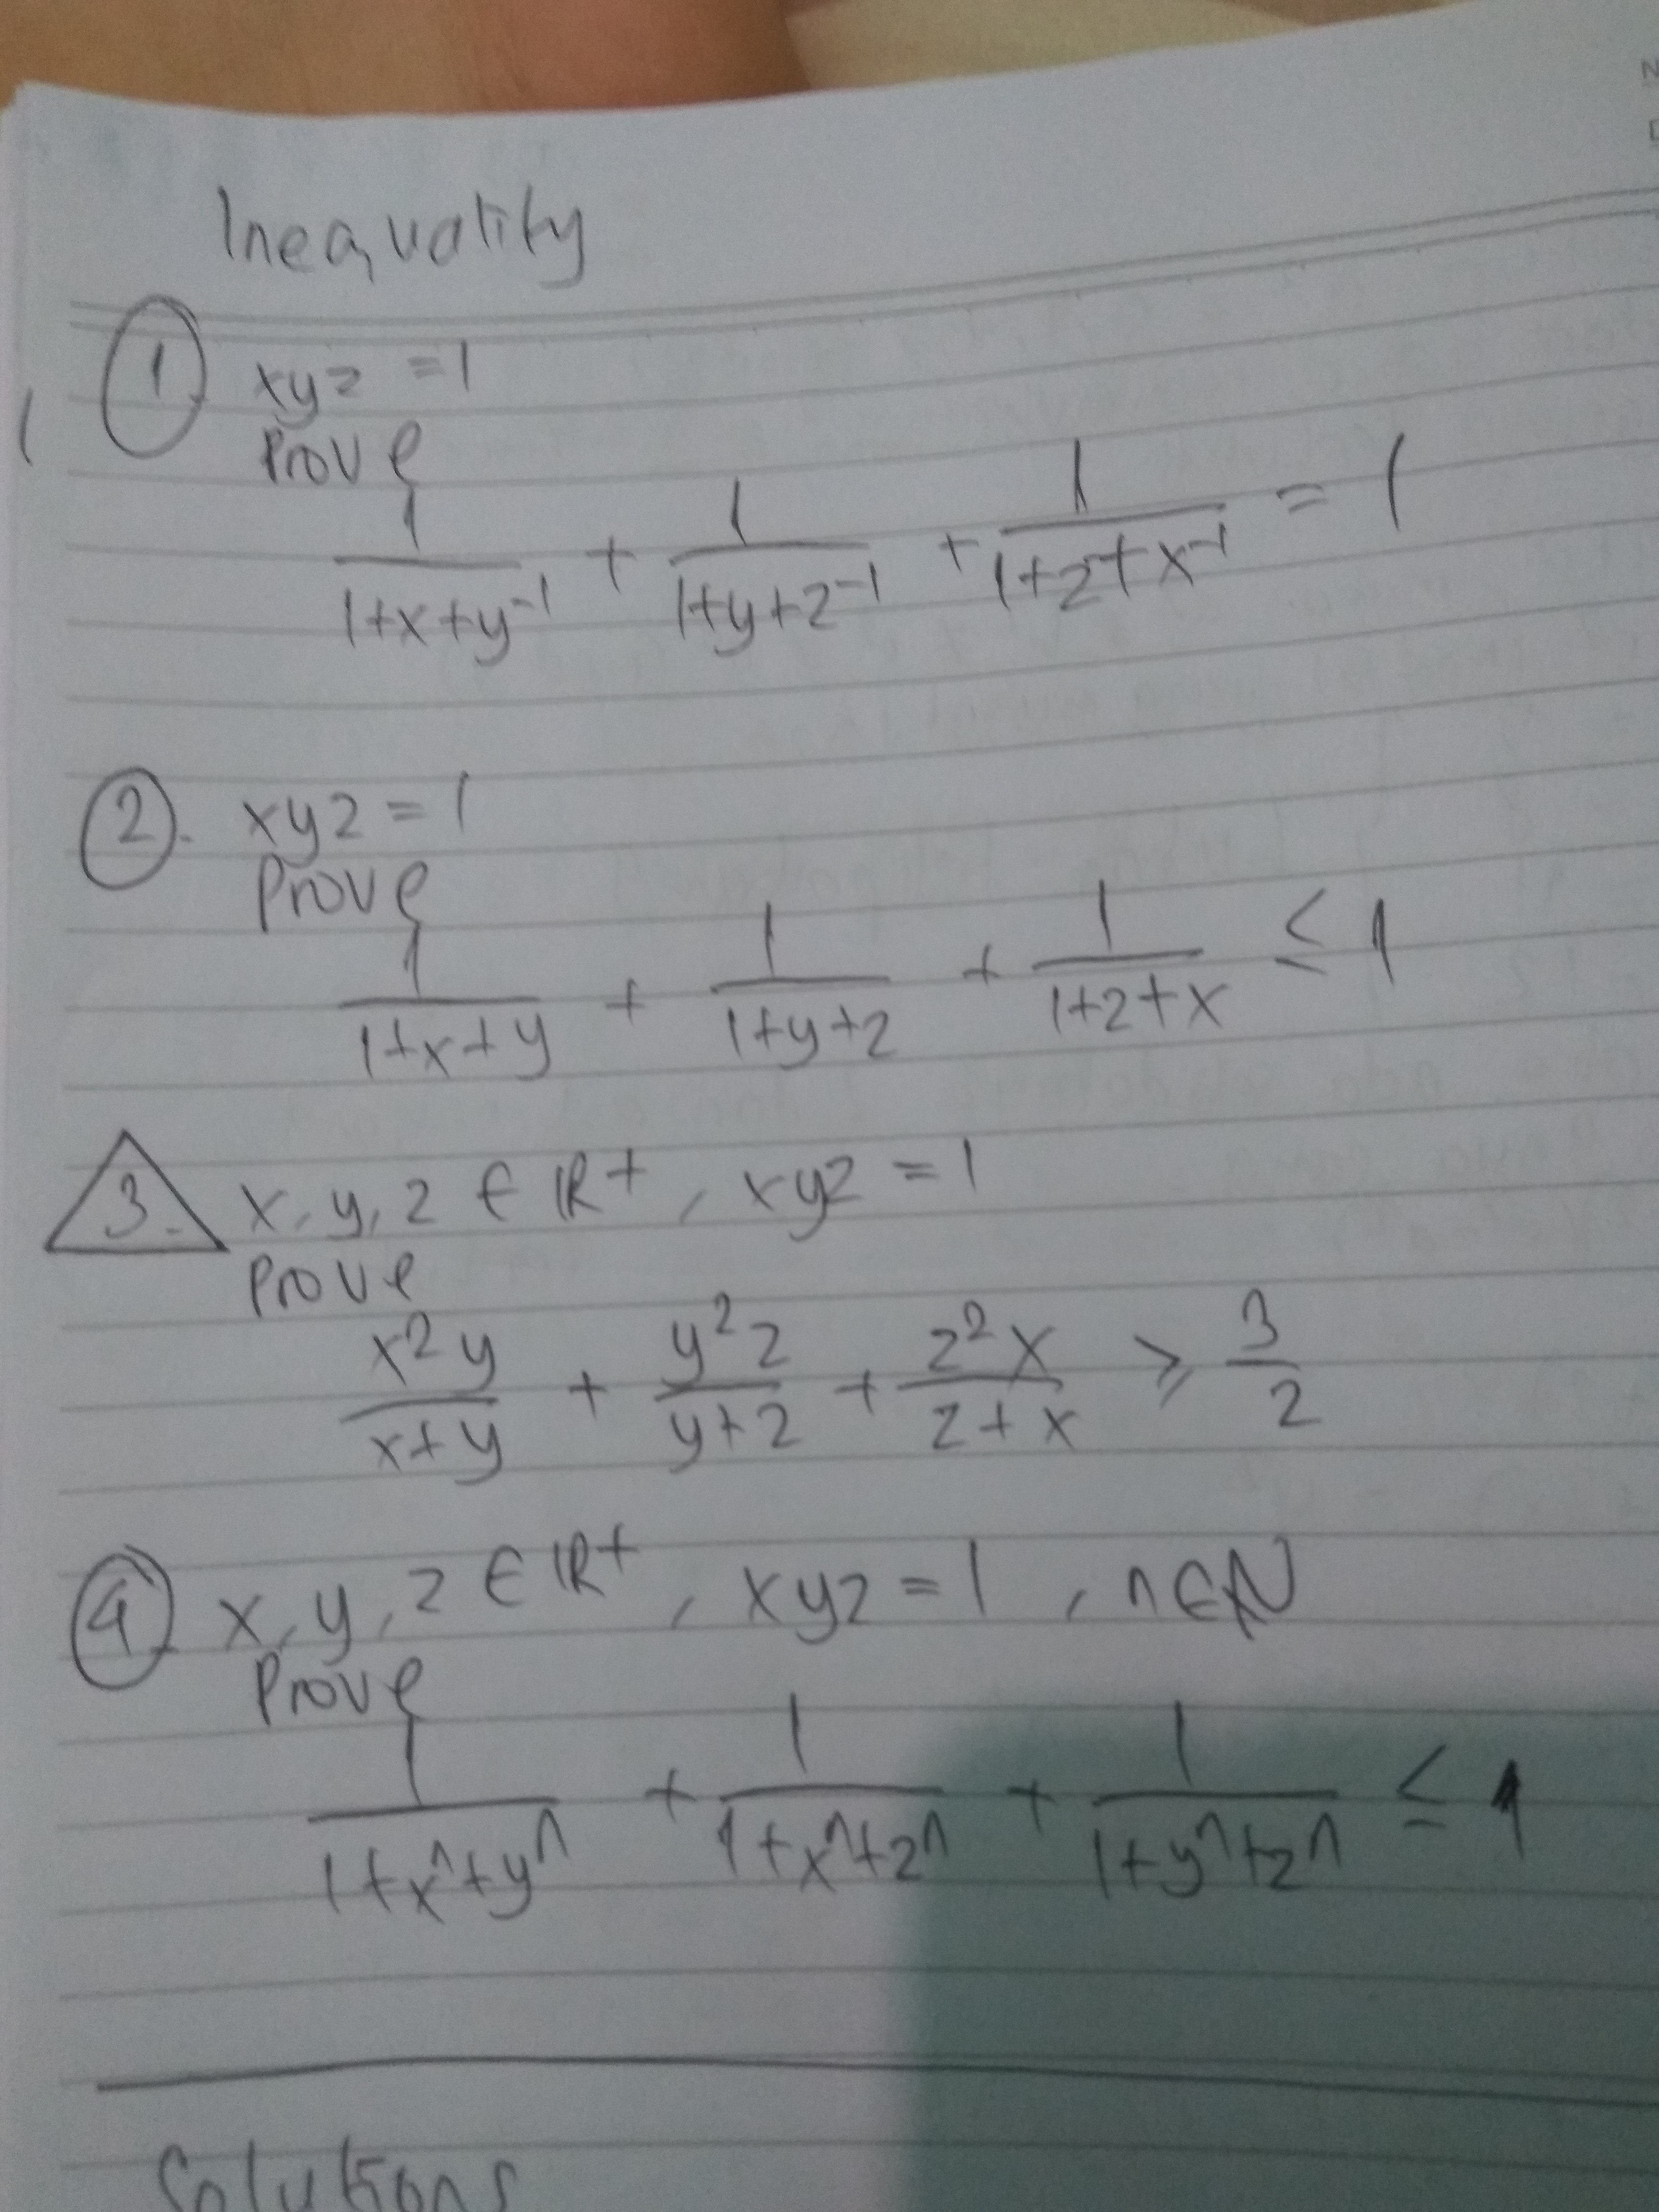 Inequality
① xyz = 1
Prove
1/(1+x+y⁻¹) + 1/(1+y+z⁻¹) + 1/(1+z+x⁻¹) = 1
②. xyz = 1
Prove
1/(1+x+y) + 1/(1+y+z) + 1/(1+z+x) ≤ 1
3. x, y, z ∈ ℝ+, xyz = 1
Prove
x²y/(x+y) + y²z/(y+z) + z²x/(z+x) ≥ 3/2
④ x, y, z ∈ ℝ+, xyz = 1, n ∈ ℕ
Prove
1/(1+xⁿ+yⁿ) + 1/(1+xⁿ+zⁿ) + 1/(1+yⁿ+zⁿ) ≤ 1
Solutions